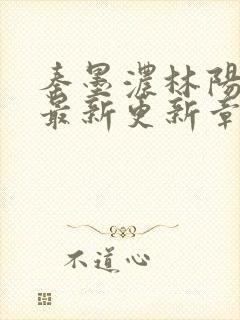 秦墨濃林陽
最新更新章
不道心